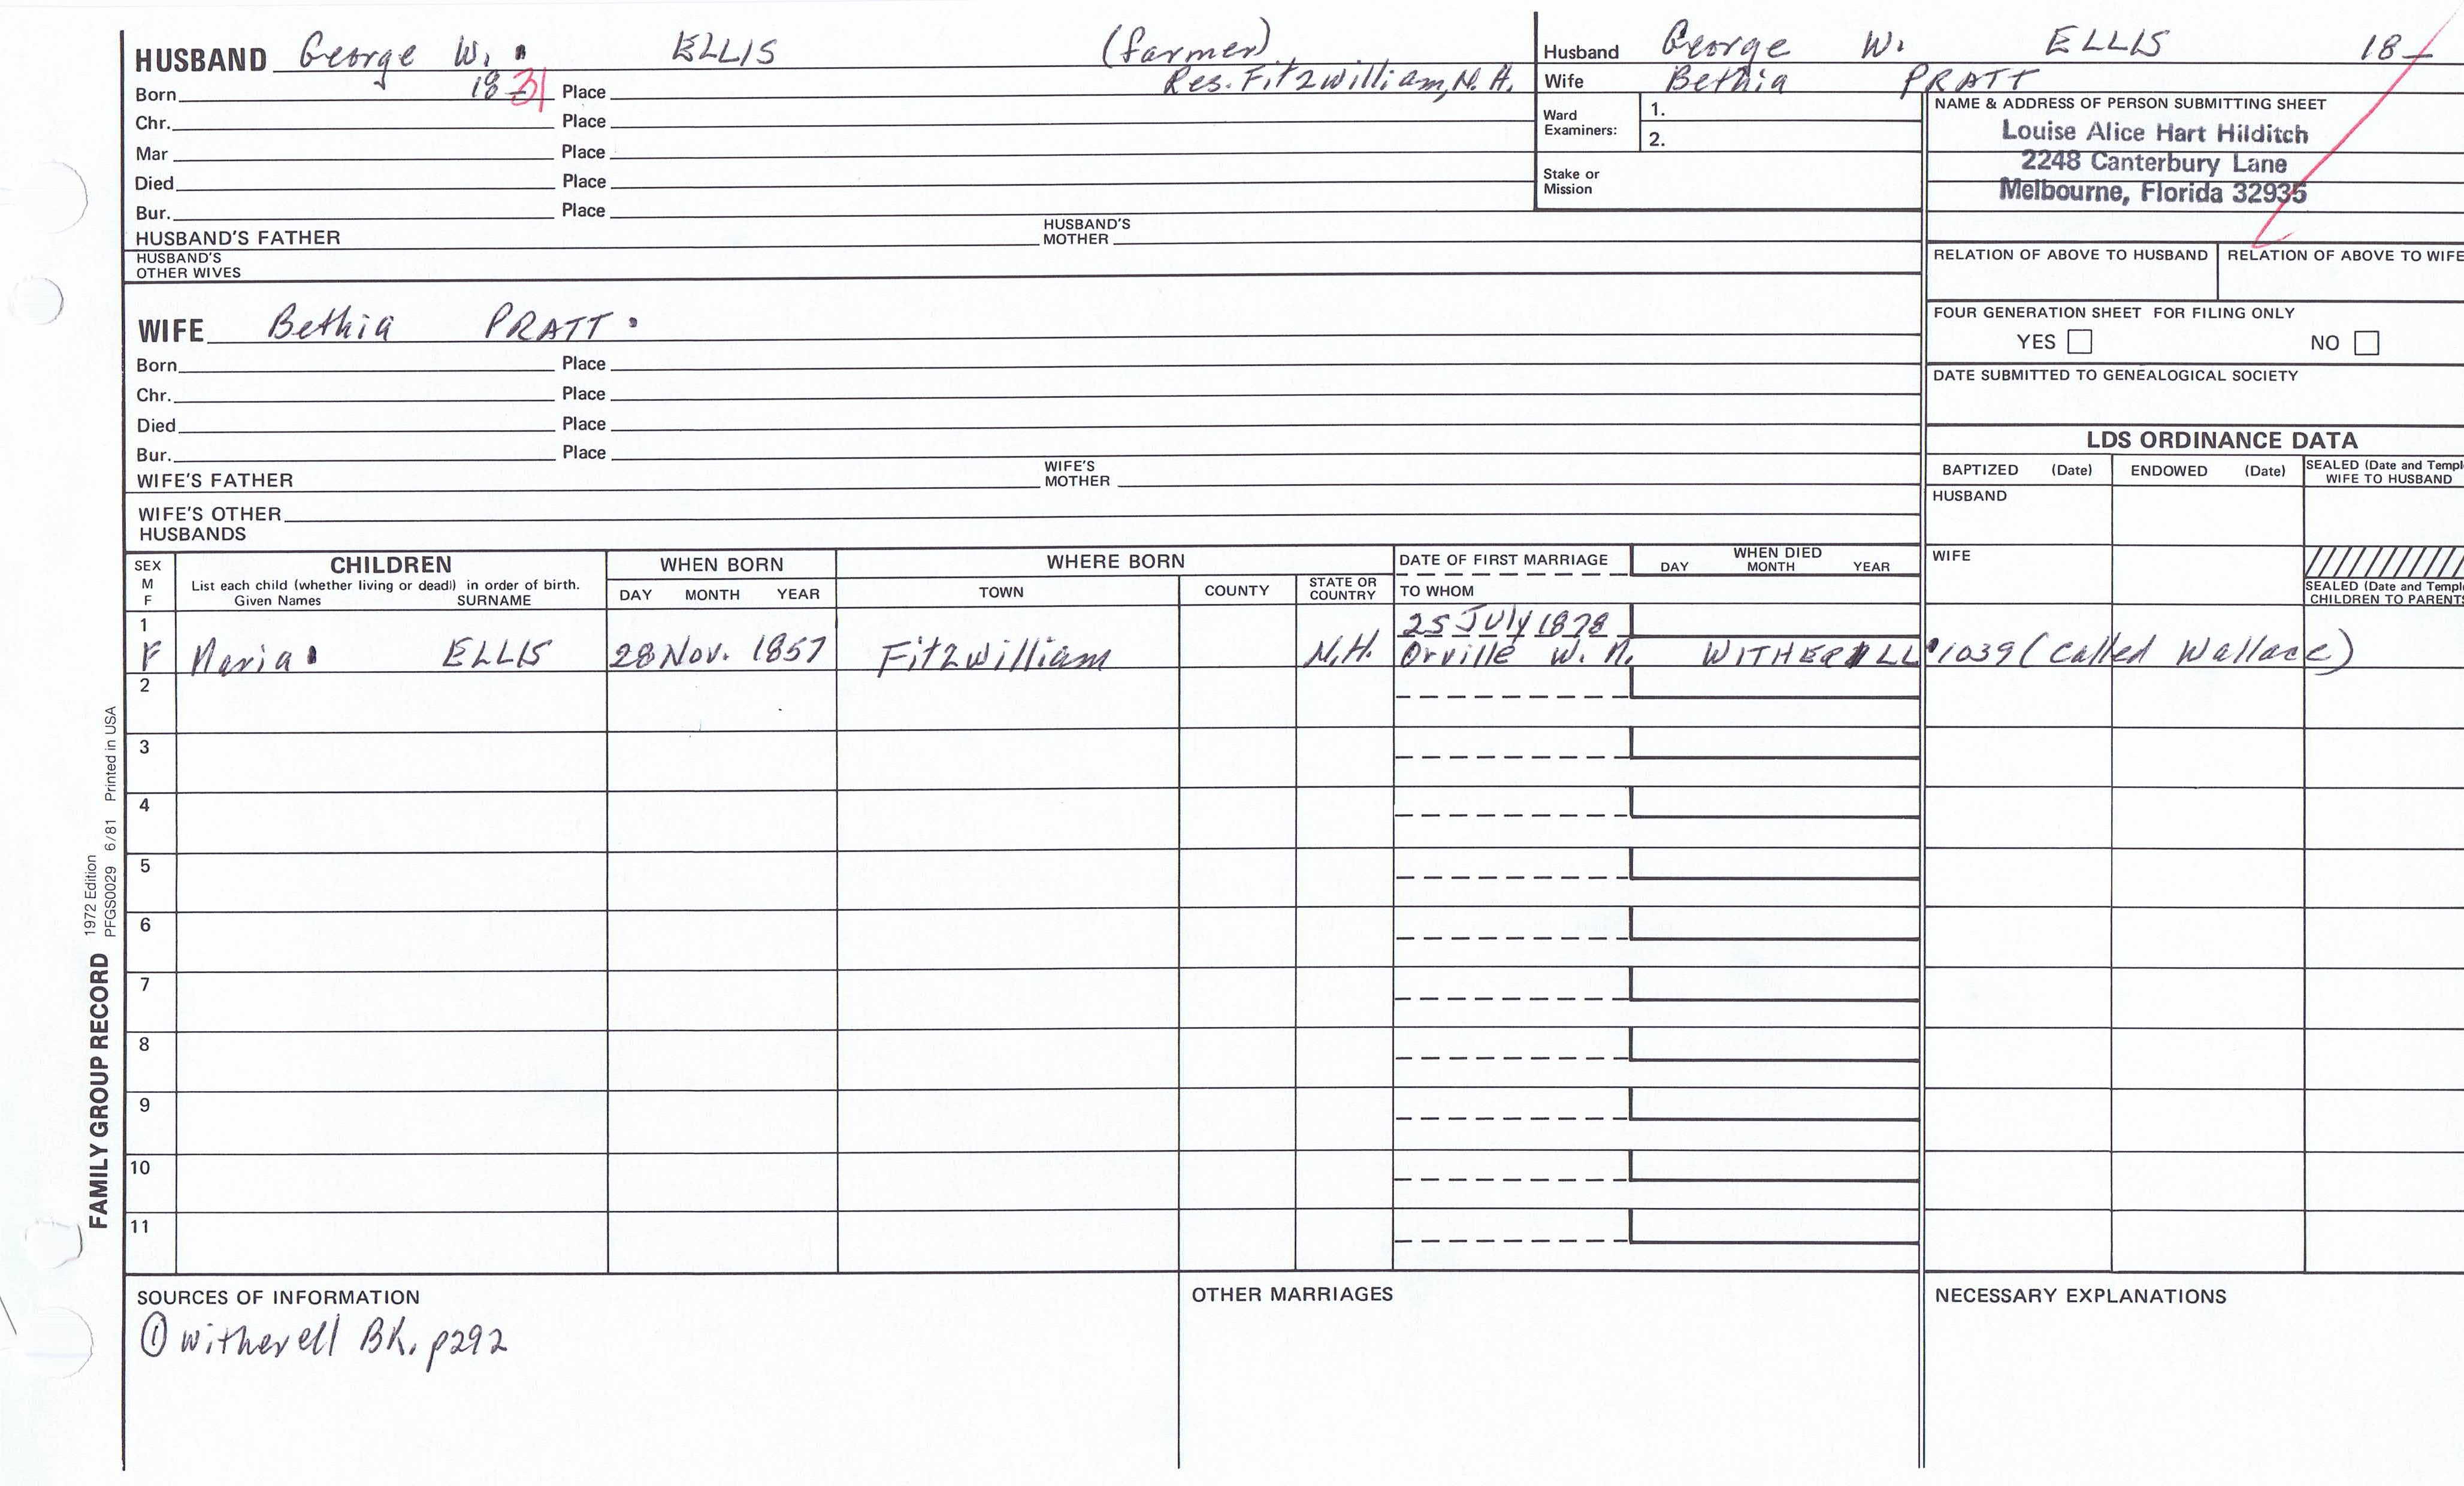 HUSBAND George W. ELLIS (farmer)
Born 18-31 Place Res. Fitzwilliam, N.H.
Chr. Place
Mar Place
Died Place
Bur. Place
HUSBAND'S FATHER HUSBAND'S MOTHER
HUSBAND'S OTHER WIVES
WIFE Bethia PRATT
Born Place
Chr. Place
Died Place
Bur. Place
WIFE'S FATHER WIFE'S MOTHER
WIFE'S OTHER HUSBANDS
Husband George W. ELLIS 18-
Wife Bethia PRATT
Ward Examiners: 1.
2.
Stake or Mission
NAME & ADDRESS OF PERSON SUBMITTING SHEET
Louise Alice Hart Hilditch
2248 Canterbury Lane
Melbourne, Florida 32935
RELATION OF ABOVE TO HUSBAND RELATION OF ABOVE TO WIFE
FOUR GENERATION SHEET FOR FILING ONLY
YES NO
DATE SUBMITTED TO GENEALOGICAL SOCIETY
LDS ORDINANCE DATA
BAPTIZED (Date) ENDOWED (Date) SEALED (Date and Templ
WIFE TO HUSBAND
HUSBAND
WIFE
SEALED (Date and Templ
CHILDREN TO PARENTS
SEX M F CHILDREN WHEN BORN WHERE BORN DATE OF FIRST MARRIAGE WHEN DIED
List each child (whether living or dead) in order of birth.
Given Names SURNAME DAY MONTH YEAR TOWN COUNTY STATE OR COUNTRY TO WHOM DAY MONTH YEAR
1 25 July 1878
F Maria ELLIS 28 Nov. 1857 Fitzwilliam N.H. Orville W. N. WITHERELL 1039 (called Wallace)
2
3
4
5
6
7
8
9
10
11
SOURCES OF INFORMATION OTHER MARRIAGES NECESSARY EXPLANATIONS
① Witherell BK. p292
FAMILY GROUP RECORD 1972 Edition
PFGS0029 6/81 Printed in USA